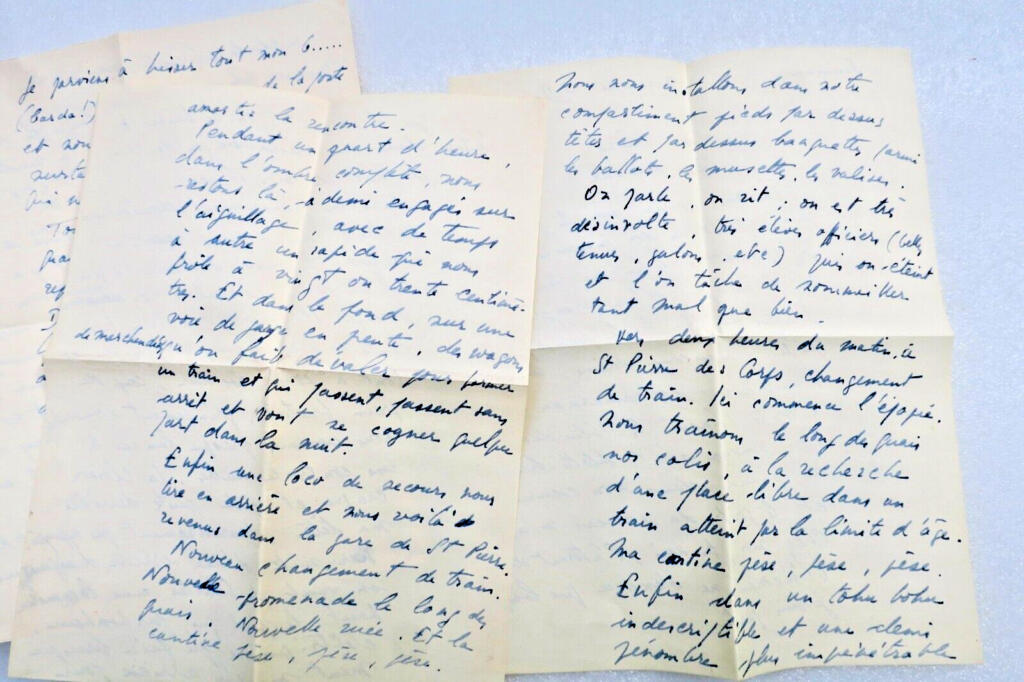 Je parviens à hisser tout mon b.....
(barda!)
de la porte
et
amortir la rencontre.
Pendant un quart d'heure,
dans l'ombre complète, nous
restons là, à demi engagés sur
l'aiguillage, avec de temps
à autre un rapide qui nous
frôle à vingt ou trente centimè-
tres. Et dans le fond, sur une
voie de garage en pente, des wagons
de marchandises qu'on fait dévaler pour former
un train et qui passent, passent sans
arrêt et vont se cogner quelque
part dans la nuit.
Enfin une loco de secours nous
tire en arrière et nous voilà
revenus dans la gare de St Pierre.
Nouveau changement de train.
Nouvelle promenade le long des
quais. Nouvelle ruée. Et la
cantine pèse, pèse, pèse.
Nous nous installons dans notre
compartiment pieds par dessus
têtes et par dessus banquettes parmi
les ballots, les musettes, les valises.
On parle, on rit ; on est très
désinvolte, très élèves officiers (belles
tenues, galons, etc) puis on éteint
et l'on tâche de sommeiller
tant mal que bien.
Vers deux heures du matin, à
St Pierre des Corps, changement
de train. Ici commence l'épopée.
Nous traînons le long des quais
nos colis à la recherche
d'une place libre dans un
train atteint par la limite d'âge.
Ma cantine pèse, pèse, pèse.
Enfin dans un tohu bohu
indescriptible et une demi
pénombre plus impénétrable